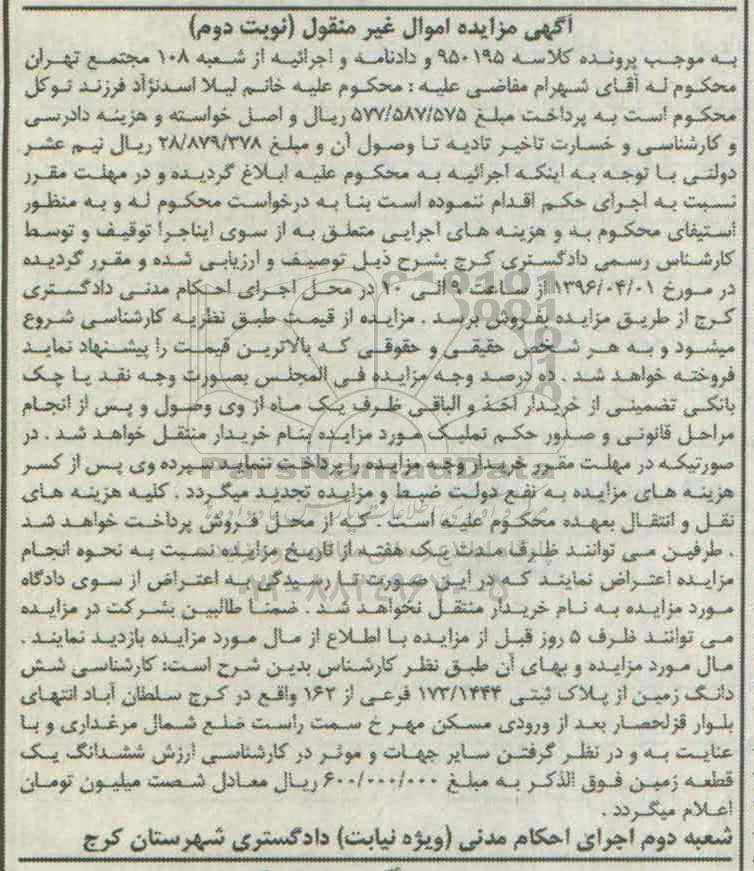 آگهی مزایده اموال غیر منقول (نوبت دوم)
به موجب پرونده کلاسه ۹۵۰۱۹۵ و دادنامه و اجرائیه از شعبه ۱۰۸ مجتمع تهران
محکوم له آقای شهرام مفاضی علیه : محکوم علیه خانم لیلا اسدنژاد فرزند توکل
محکوم است به پرداخت مبلغ ۵۷۷/۵۸۷/۵۷۵ ریال و اصل خواسته و هزینه دادرسی
و کارشناسی و خسارت تاخیر تادیه تا وصول آن و مبلغ ۲۸/۸۷۹/۳۷۸ ریال نیم عشر
دولتی با توجه به اینکه اجرائیه به محکوم علیه ابلاغ گردیده و در مهلت مقرر
نسبت به اجرای حکم اقدام ننموده است بنا به درخواست محکوم له و به منظور
استیفای محکوم به و هزینه های اجرایی متعلق به از سوی ایناجرا توقیف و توسط
کارشناس رسمی دادگستری کرج بشرح ذیل توصیف و ارزیابی شده و مقرر گردیده
در مورخ ۱۳۹۶/۰۴/۰۱ از ساعت ۹ الی ۱۰ در محل اجرای احکام مدنی دادگستری
کرج از طریق مزایده بفروش برسد . مزایده از قیمت طبق نظریه کارشناسی شروع
میشود و به هر شخص حقیقی و حقوقی که بالاترین قیمت را پیشنهاد نماید
فروخته خواهد شد . ده درصد وجه مزایده فی المجلس بصورت وجه نقد یا چک
بانکی تضمینی از خریدار اخذ و الباقی ظرف یک ماه از وی وصول و پس از انجام
مراحل قانونی و صدور حکم تملیک مورد مزایده بنام خریدار منتقل خواهد شد . در
صورتیکه در مهلت مقرر خریدار وجه مزایده را پرداخت ننماید سپرده وی پس از کسر
هزینه های مزایده به نفع دولت ضبط و مزایده تجدید میگردد . کلیه هزینه های
نقل و انتقال بعهده محکوم علیه است . که از محل فروش پرداخت خواهد شد
. طرفین می توانند ظرف مدت یک هفته از تاریخ مزایده نسبت به نحوه انجام
مزایده اعتراض نمایند که در این صورت تا رسیدگی به اعتراض از سوی دادگاه
مورد مزایده به نام خریدار منتقل نخواهد شد . ضمنا طالبین بشرکت در مزایده
می توانند ظرف ۵ روز قبل از مزایده با اطلاع از مال مورد مزایده بازدید نمایند .
مال مورد مزایده و بهای آن طبق نظر کارشناس بدین شرح است: کارشناسی شش
دانگ زمین از پلاک ثبتی ۱۷۳/۱۴۴۴ فرعی از ۱۶۲ واقع در کرج سلطان آباد انتهای
بلوار قزلحصار بعد از ورودی مسکن مهر خ سمت راست ضلع شمال مرغداری و با
عنایت به و در نظر گرفتن سایر جهات و موثر در کارشناسی ارزش ششدانگ یک
قطعه زمین فوق الذکر به مبلغ ۶۰۰/۰۰۰/۰۰۰ ریال معادل شصت میلیون تومان
اعلام میگردد .
شعبه دوم اجرای احکام مدنی (ویژه نیابت) دادگستری شهرستان کرج
ParsNamadData